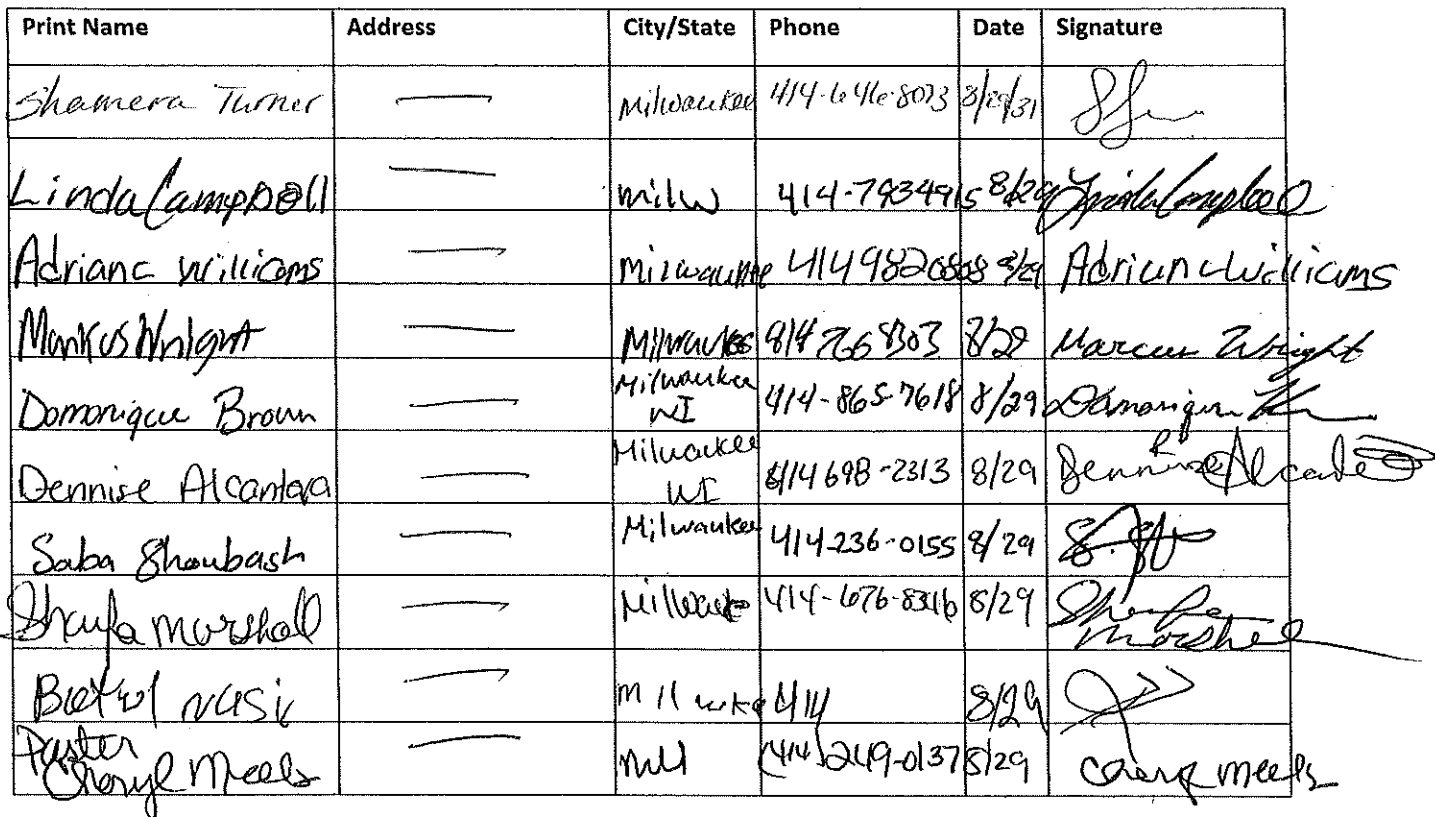 Print Name Address City/State Phone Date Signature
Shamera Turner — Milwaukee 414-646-8073 8/29/31
Linda Campbell — milw 414-7934915 8/29 Linda Campbell
Adriane Williams — Milwaukee 4149820808 8/29 Adriane Williams
Markus Wright — Milwaukee 414 766 8303 8/29 Marcus Wright
Domonique Brown — Milwaukee WI 414-865-7618 8/29 Domonique
Dennise Alcantara — Milwaukee WI 414 698-2313 8/29 Dennise
Saba Shoubash — Milwaukee 414-236-0155 8/29
Marshall — 414-676-8316 8/29
— 414 8/29
Paster Cheryl Meeks — Mil (414) 249-0137 8/29 Meeks